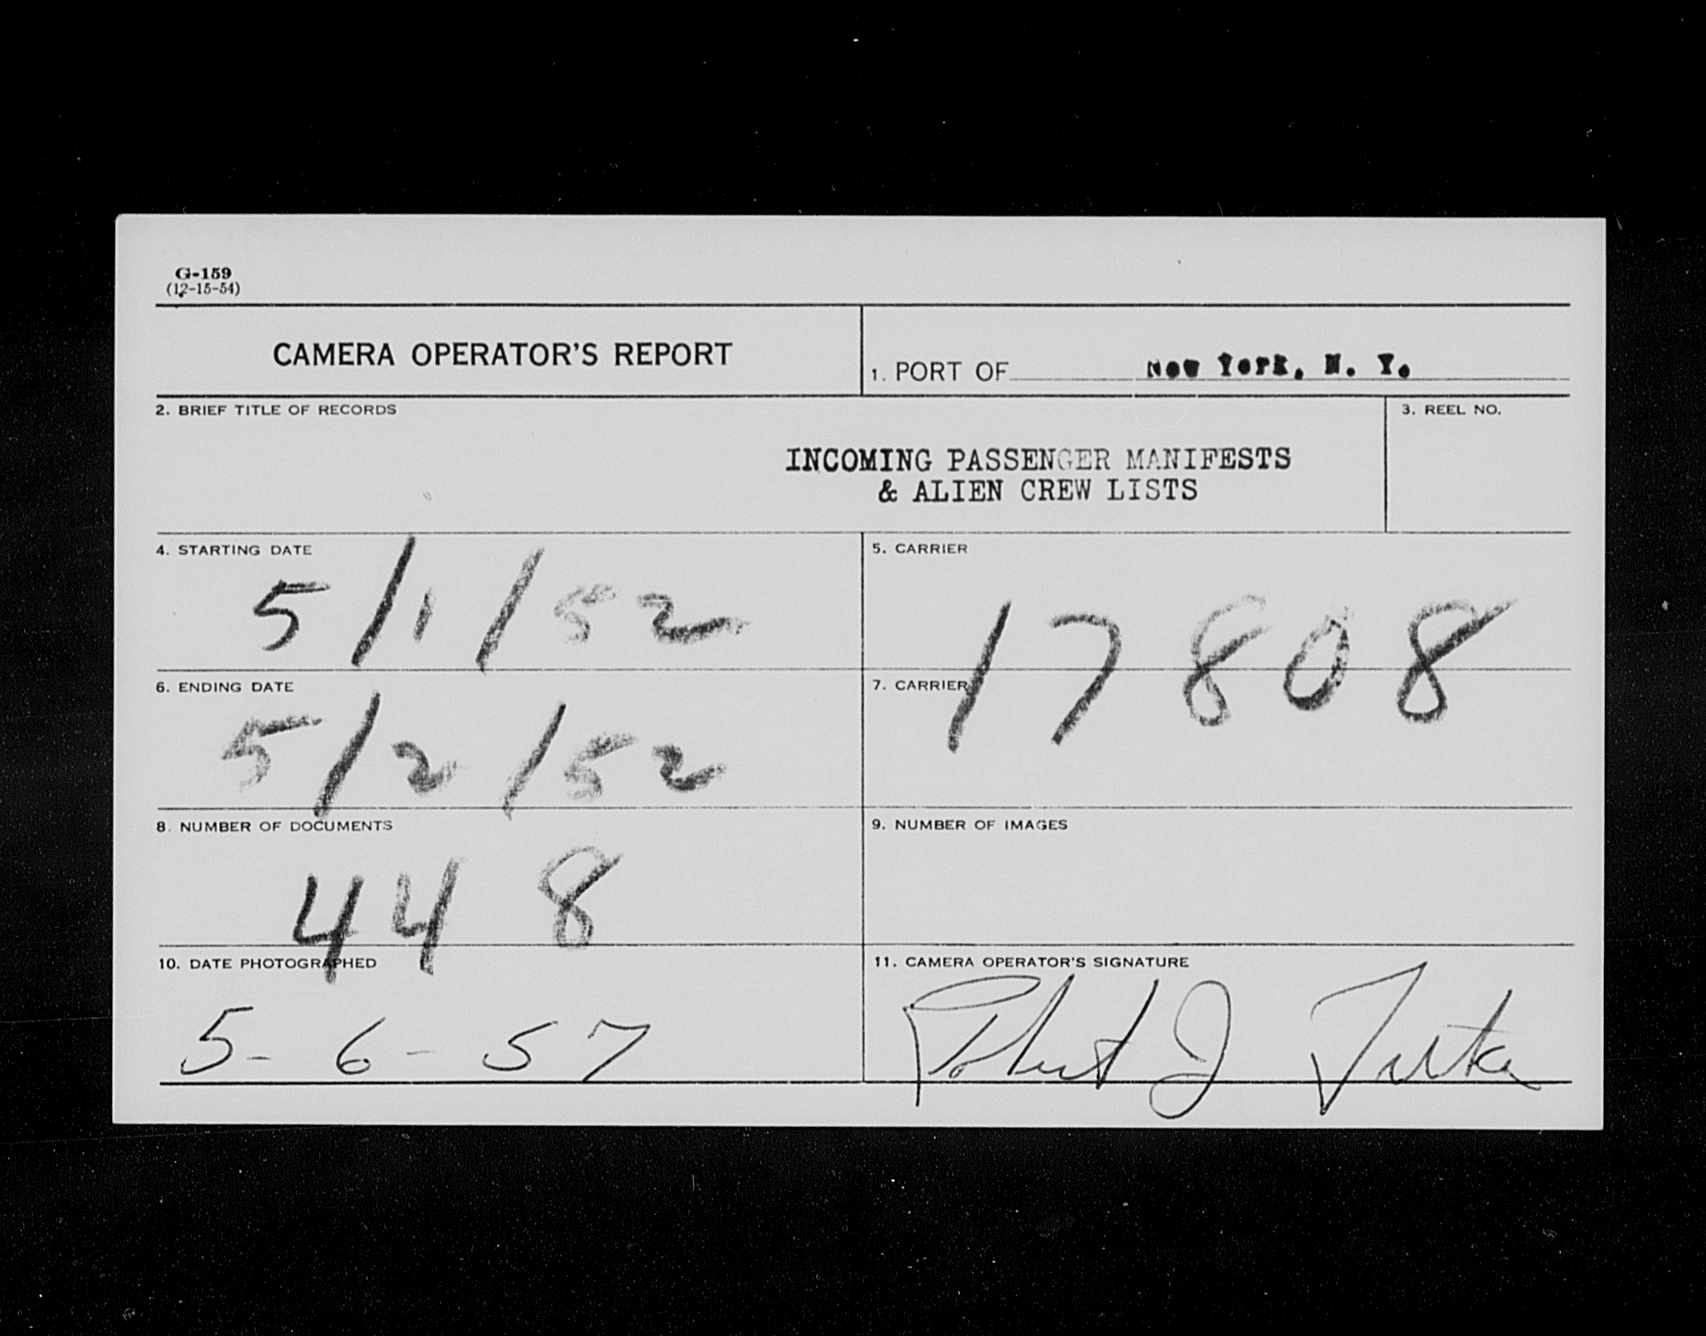 G-159
(12-15-54)
CAMERA OPERATOR'S REPORT
1. PORT OF New York, N. Y.
2. BRIEF TITLE OF RECORDS
INCOMING PASSENGER MANIFESTS
& ALIEN CREW LISTS
3. REEL NO.
4. STARTING DATE
5/1/52
5. CARRIER
17808
6. ENDING DATE
5/2/52
7. CARRIER
8. NUMBER OF DOCUMENTS
448
9. NUMBER OF IMAGES
10. DATE PHOTOGRAPHED
5-6-57
11. CAMERA OPERATOR'S SIGNATURE
Robert J